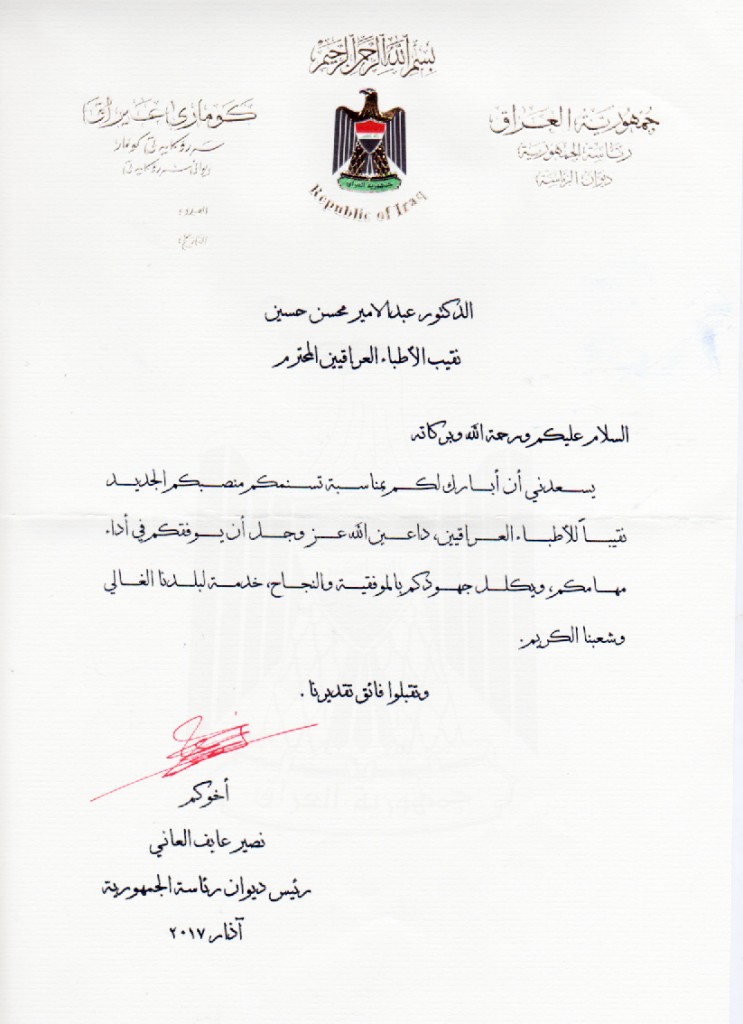 بسم الله الرحمن الرحيم
جمهورية العراق
رئاسة الجمهورية
ديوان الرئاسة
كۆماری عێراق
سەرۆكایەتی كۆمار
دیوانی سەرۆكایەتی
العدد:
التاريخ:
جمهورية العراق
Republic of Iraq
الدكتور عبدالامير محسن حسين
نقيب الأطباء العراقيين المحترم
السلام عليكم ورحمة الله وبركاته
يسعدني أن أبارك لكم بمناسبة تسنمكم منصبكم الجديد
نقيباً للأطباء العراقيين، داعين الله عز وجل أن يوفقكم في أداء
مهامكم، ويكلل جهودكم بالموفقية والنجاح، خدمة لبلدنا الغالي
وشعبنا الكريم.
وتقبلوا فائق تقديرنا .
أخوكم
نصير عايف العاني
رئيس ديوان رئاسة الجمهورية
آذار ٢٠١٧